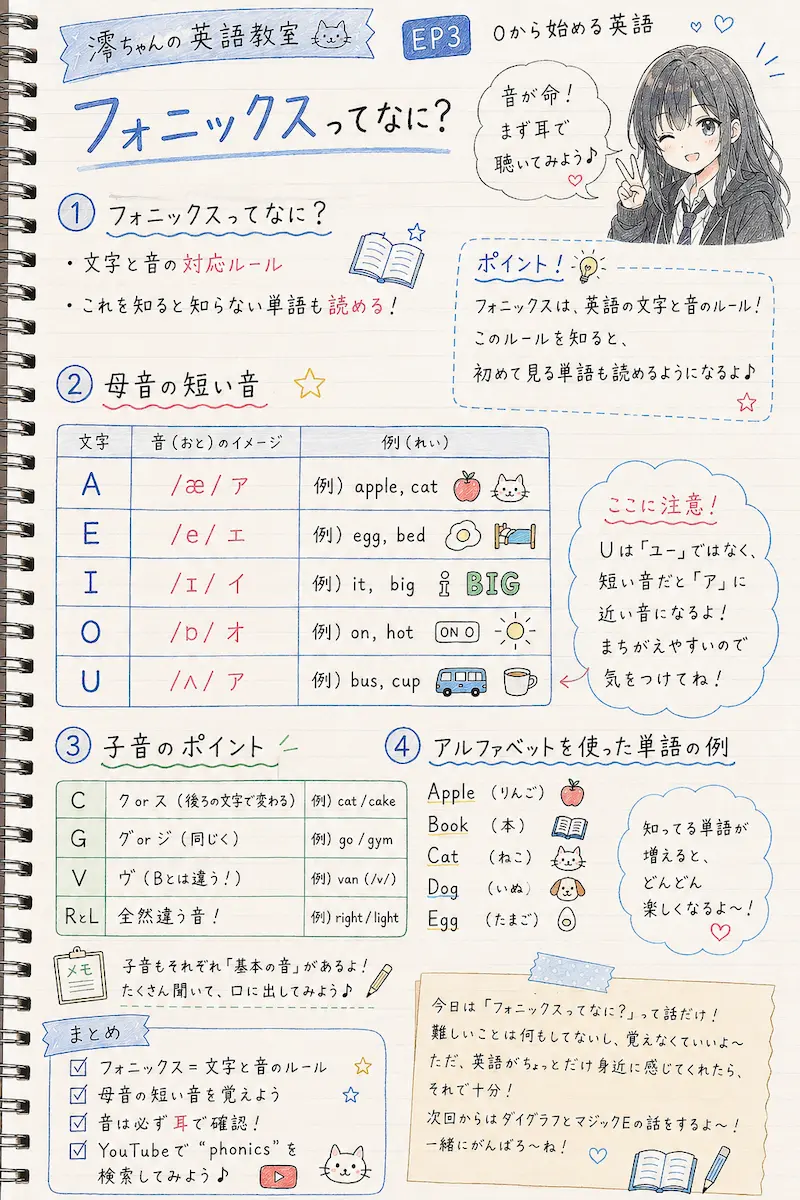 澪ちゃんの英語教室
EP3
0から始める英語
フォニックスってなに？
音が命！
まず耳で
聴いてみよう♪
① フォニックスってなに？
・文字と音の対応ルール
・これを知ると知らない単語も読める！
ポイント！
フォニックスは、英語の文字と音のルール！
このルールを知ると、
初めて見る単語も読めるようになるよ♪
② 母音の短い音
文字 音（おと）のイメージ 例（れい）
A /æ/ ア 例）apple, cat
E /e/ エ 例）egg, bed
I /ɪ/ イ 例）it, big i BIG
O /ɒ/ オ 例）on, hot ON O
U /ʌ/ ア 例）bus, cup
ここに注意！
Uは「ユー」ではなく、
短い音だと「ア」に
近い音になるよ！
まちがえやすいので
気をつけてね！
③ 子音のポイント
C ク or ス（後ろの文字で変わる） 例）cat / cake
G グ or ジ（同じく） 例）go / gym
V ヴ（Bとは違う！） 例）van (/v/)
RとL 全然違う音！ 例）right / light
メモ
子音もそれぞれ「基本の音」があるよ！
たくさん聞いて、口に出してみよう♪
④ アルファベットを使った単語の例
Apple （りんご）
Book （本）
Cat （ねこ）
Dog （いぬ）
Egg （たまご）
知ってる単語が
増えると、
どんどん
楽しくなるよ〜！
まとめ
☑ フォニックス＝文字と音のルール
☑ 母音の短い音を覚えよう
☑ 音は必ず耳で確認！
☑ YouTubeで “phonics” を
検索してみよう♪
今日は「フォニックスってなに？」って話だけ！
難しいことは何もしてないし、覚えなくていいよ〜
ただ、英語がちょっとだけ身近に感じてくれたら、
それで十分！
次回からはダイグラフとマジックEの話をするよ〜！
一緒にがんばろ〜ね！